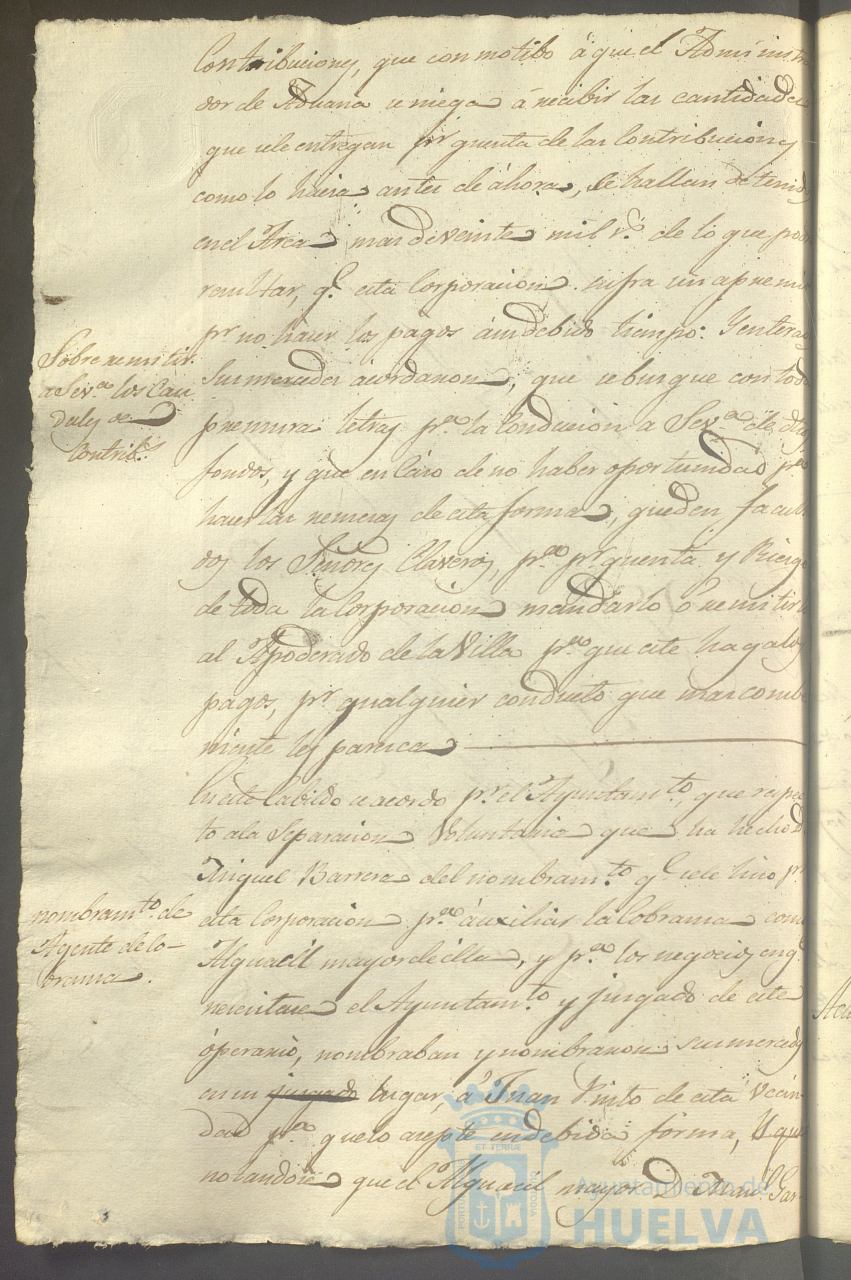 Contribuciones, que con motibo á que el Administra
dor de Aduana se niega á recibir las cantidades
que se le entregan pr quenta de las Contribuciones
como lo hacia antes de áhora, se hallan detenidos
en el Arca mas de veinte mil rs. de lo que podra
resultar, q.e esta Corporacion sufra un apremio
pr no hacer los pagos á su debido tiempo: Y enterados
Sobre remitir
a Sev.a los Cau
dales de
Contrib.s
sus mercedes acordaron, que se busque con toda
premura letras p.a la conducion a Sev.a de dhos
fondos, y que en caso de no haber oportunidad p.a
hacer las remesas de esta forma, queden faculta
dos los Señores Claveros, p.a pr quenta y Riesgo
de toda la Corporacion mandarlo ó remitirlo
al Apoderado de la Villa p.a que este haga los
pagos, pr qualquier conducto que mas combe
niente les paresca
En este Cabildo se acordo pr el Ayuntam.to, que respec
to a la Separacion Voluntaria que ha hecho D
Miguel Barrera del nombram.to q.e se le hiso pr
nombram.to de
Agente de co-
bransa.
esta Corporacion p.a áuxiliar la Cobransa como
Alguacil mayor de élla, y p.a los negocios en q.e
nesesitase el Ayuntam.to y jusgado de este
óperario, nombraban y nombraron sus mercedes
en su jusgado lugar, á Juan Pinto de esta Vecin
dad p.a que lo asepte en debida forma, Y que
notandose que el Alguacil mayor D Man.l Gar-
Ayuntamiento de
HUELVA